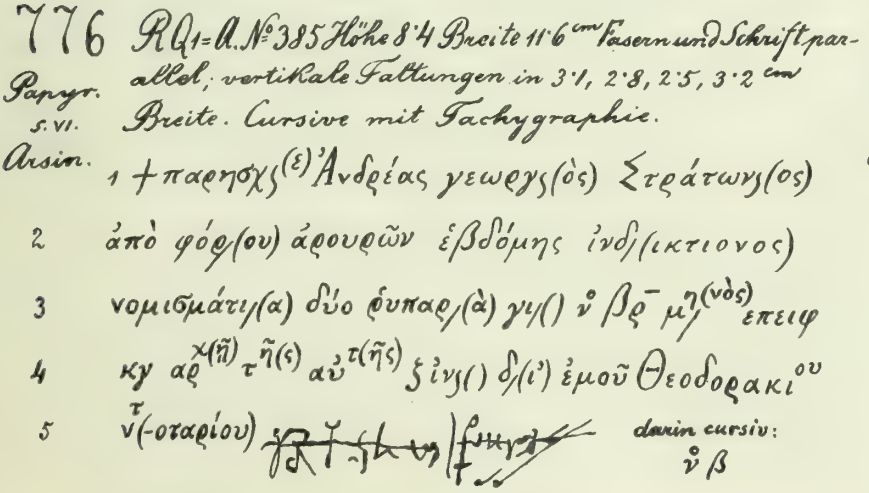 776 RQ1=A. № 385 Höhe 8·4 Breite 11·6 cm Fasern und Schrift par-
Papyr. allel; vertikale Faltungen in 3·1, 2·8, 2·5, 3·2 cm
s. VI. Breite. Cursive mit Tachygraphie.
Arsin.
1 + παρησχς(ε) Ἀνδρέας γεωργς(ὸς) Στράτωνς(ος)
2 ἀπὸ φόρ/(ου) ἀρουρῶν ἑβδόμης ἰνδ/(ικτιονος)
3 νομισμάτι/(α) δύο ῥυπαρ/(ὰ) γι/() ν̊ βρ– μ/η(νὸς) επειφ
4 κγ αρχ(ῆ) τῆ(ς) αὐτ(ῆς) ξ ἰνς() δ/(ι’) ἐμοῦ Θεοδορακιου
5 ντ(-οταρίου) darin cursiv:
ν̊ β